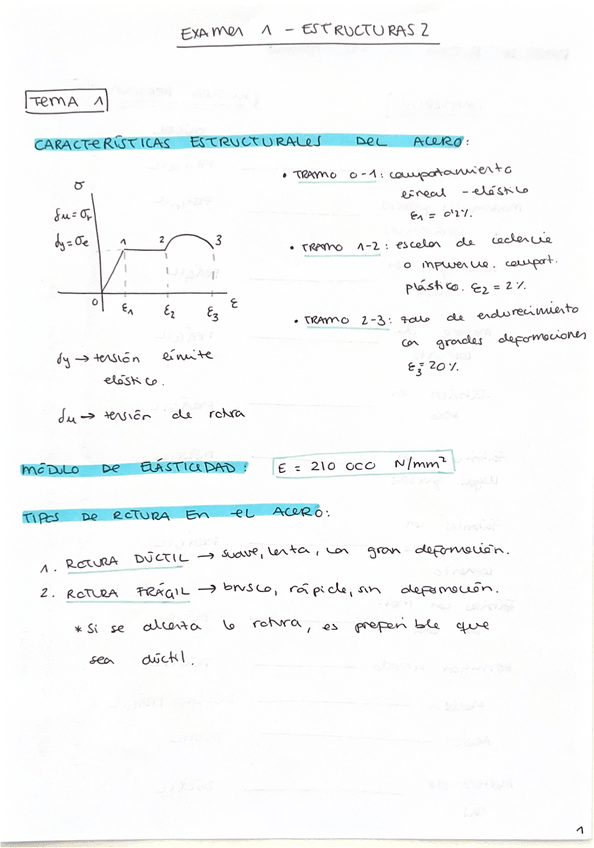 EXAMEN 1 - ESTRUCTURAS 2
TEMA 1
CARACTERÍSTICAS ESTRUCTURALES DEL ACERO:
σ
fu = σr
fy = σe
1
2
3
0
ε1
ε2
ε3
ε
fy → tensión límite
elástico.
fu → tensión de rotura
• TRAMO 0-1: comportamiento
lineal - elástico
ε1 = 0'2%.
• TRAMO 1-2: escalón de cedencia
o fluencia. comport.
plástico. ε2 = 2%
• TRAMO 2-3: de endurecimiento
con grandes deformaciones
ε3 = 20%.
MÓDULO DE ELASTICIDAD: E = 210 000 N/mm²
TIPOS DE ROTURA EN EL ACERO:
1. ROTURA DÚCTIL → suave, lenta, con gran deformación.
2. ROTURA FRÁGIL → brusca, rápida, sin deformación.
* Si se alcanza la rotura, es preferible que
sea dúctil.
1